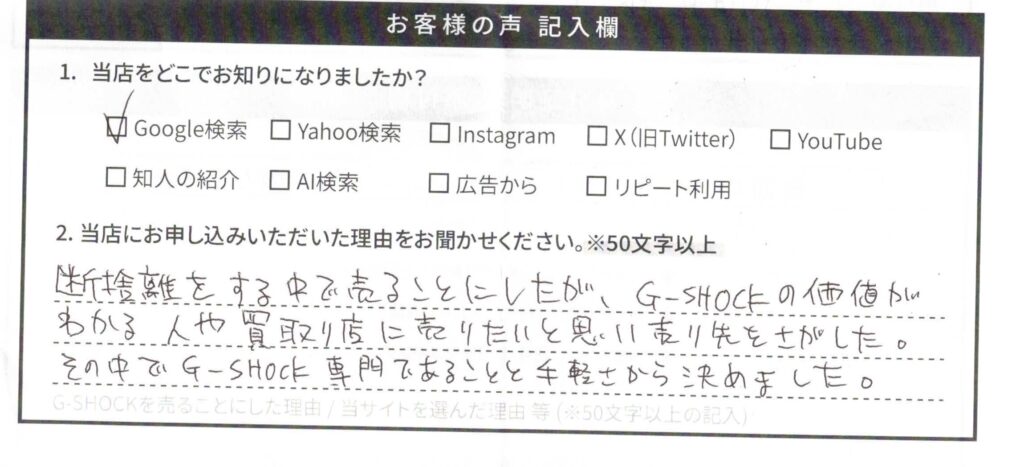 お客様の声 記入欄
1. 当店をどこでお知りになりましたか?
☑ Google検索 □ Yahoo検索 □ Instagram □ X(旧Twitter) □ YouTube
□ 知人の紹介 □ AI検索 □ 広告から □ リピート利用
2. 当店にお申し込みいただいた理由をお聞かせください。※50文字以上
断捨離をする中で売ることにしたが、G-SHOCKの価値が
わかる人や買取り店に売りたいと思い売り先をさがした。
その中でG-SHOCK専門であることと手軽さから決めました。
G-SHOCKを売ることにした理由 / 当サイトを選んだ理由 等 (※50文字以上の記入)